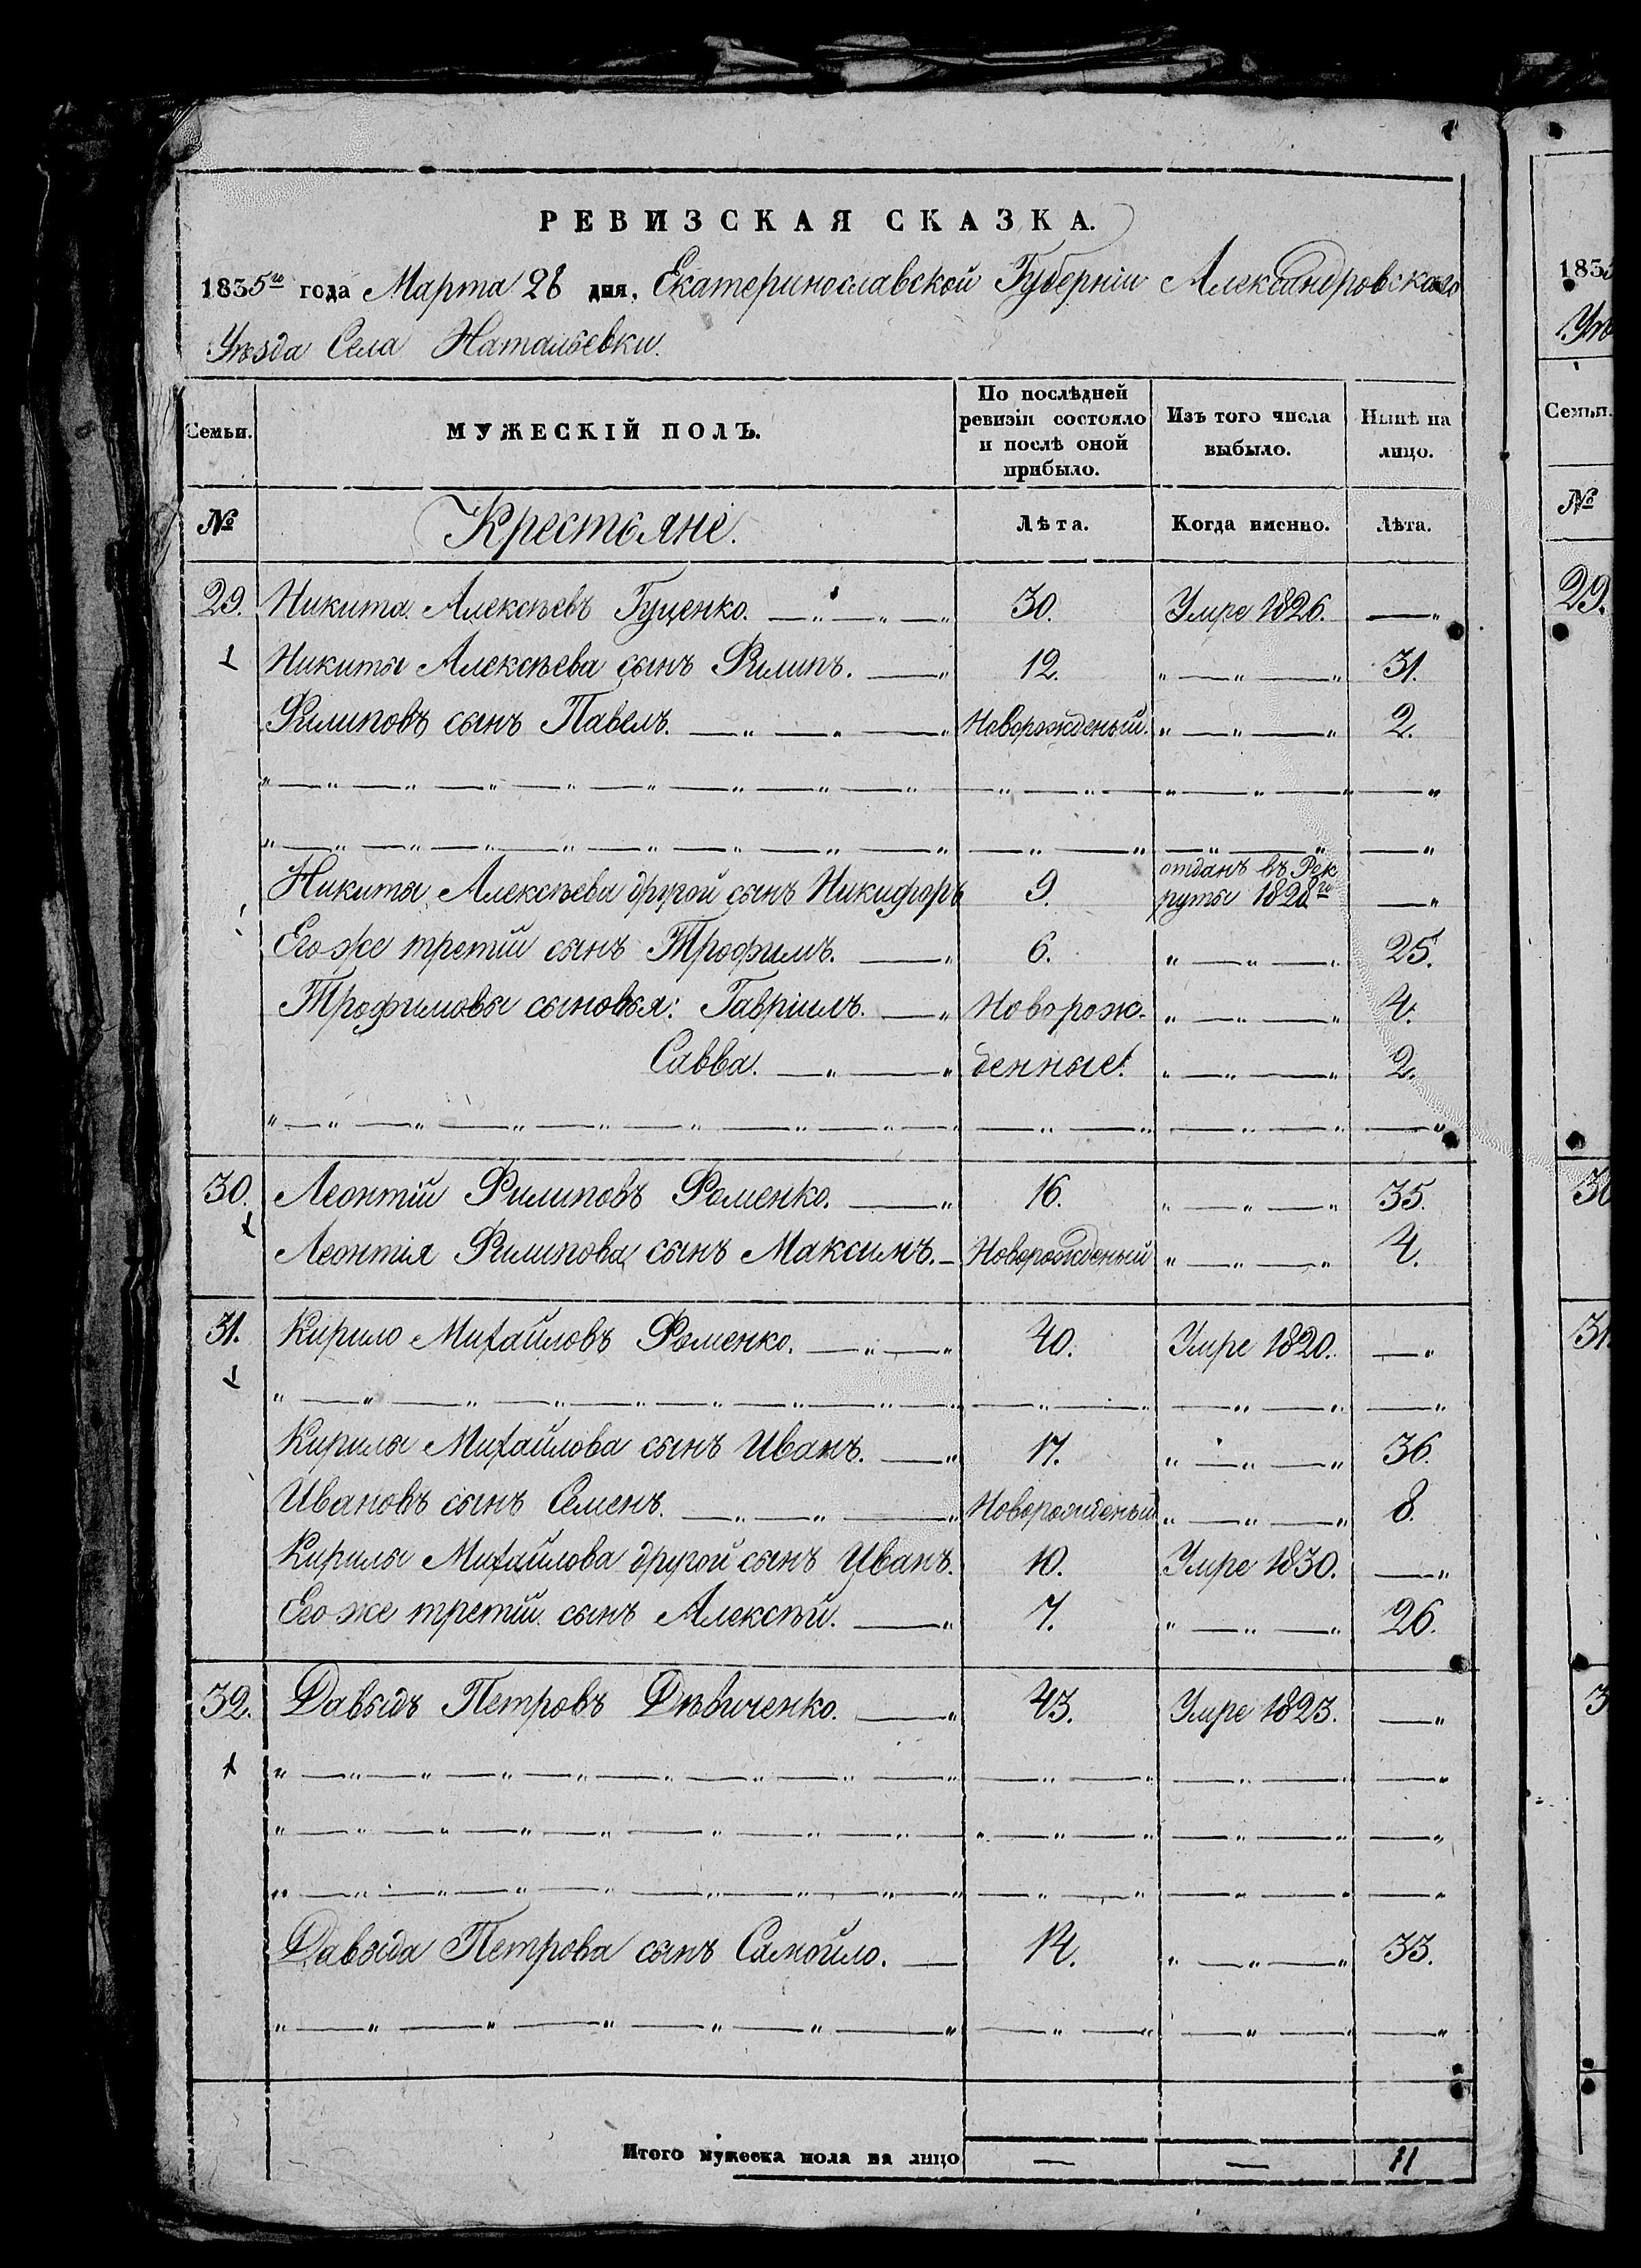 РЕВИЗСКАЯ СКАЗКА.
1835го года Марта 28 дня, Екатеринославской Губерніи Александровскаго
Уѣзда Села Натальевки.
Семьи. МУЖЕСКІЙ ПОЛЪ. По послѣдней ревизіи состояло и послѣ оной прибыло. Изъ того числа выбыло. Нынѣ на лицо.
№ Крестьяне. Лѣта. Когда именно. Лѣта.
29. Никита Алексѣевъ Гуценко. — „ — „ — „ 30. Умре 1826. — „
Никиты Алексѣева сынъ Филипъ. — „ 12. „ — „ — „ 31.
Филиповъ сынъ Павелъ. — „ — „ — „ Новорожденый. „ — „ — „ 2.
Никиты Алексѣева другой сынъ Никифоръ 9. отданъ въ Рек
руты 1828го — „
Его же третій сынъ Трофимъ. — „ 6. „ — „ — „ 25.
Трофимовы сыновья: Гавріилъ. — „ Новорож- „ — „ — „ 4.
Савва. — „ — „ денные. „ — „ — „ 2.
30. Леонтій Филиповъ Фоменко. — „ 16. „ — „ — „ 35.
Леонтія Филипова сынъ Максимъ. – Новорожденый „ — „ — „ 4.
31. Кирило Михайловъ Фоменко. — „ — „ 40. Умре 1820. — „
Кирилы Михайлова сынъ Иванъ. — „ 17. „ — „ — „ 36.
Ивановъ сынъ Семенъ. — „ — „ — „ Новорожденый „ — „ — „ 8.
Кирилы Михайлова другой сынъ Иванъ. 10. Умре 1830. — „
Его же третій сынъ Алексѣй. — „ 7. „ — „ — „ 26.
32. Давыдъ Петровъ Дѣвиченко. — „ 43. Умре 1823. — „
Давыда Петрова сынъ Самойло. — 14. „ — „ — „ 33.
Итого мужеска пола на лицо — — 11
1835
Уѣ
Семьи.
№
29.
30
31
3